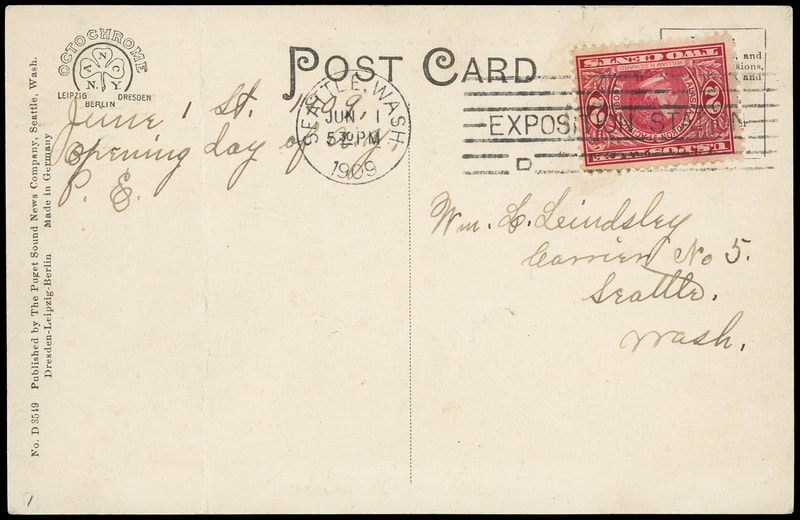 OCTOCHROME
N
V C
N. Y.
LEIPZIG DRESDEN
BERLIN
POST CARD
June 1 St. 1909
Opening day of
P. E.
SEATTLE, WASH.
JUN 1
5 30 PM
1909
EXPOSITION STATION
D
U.S. POSTAGE
2 2
TWO CENTS
Wm. L. Lindsley
Carrier No 5.
Seattle.
Wash.
No. D 3549 Published by The Puget Sound News Company, Seattle, Wash.
Dresden-Leipzig-Berlin Made in Germany
and
sions,
and
1